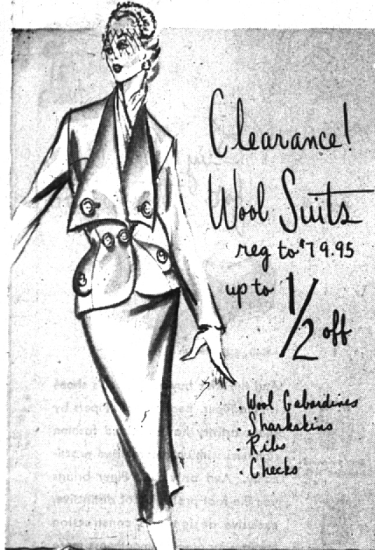 Clearance!
Wool Suits
reg to $79.95
up to 1/2 off
• Wool Gabardines
• Sharkskins
• Ribs
• Checks